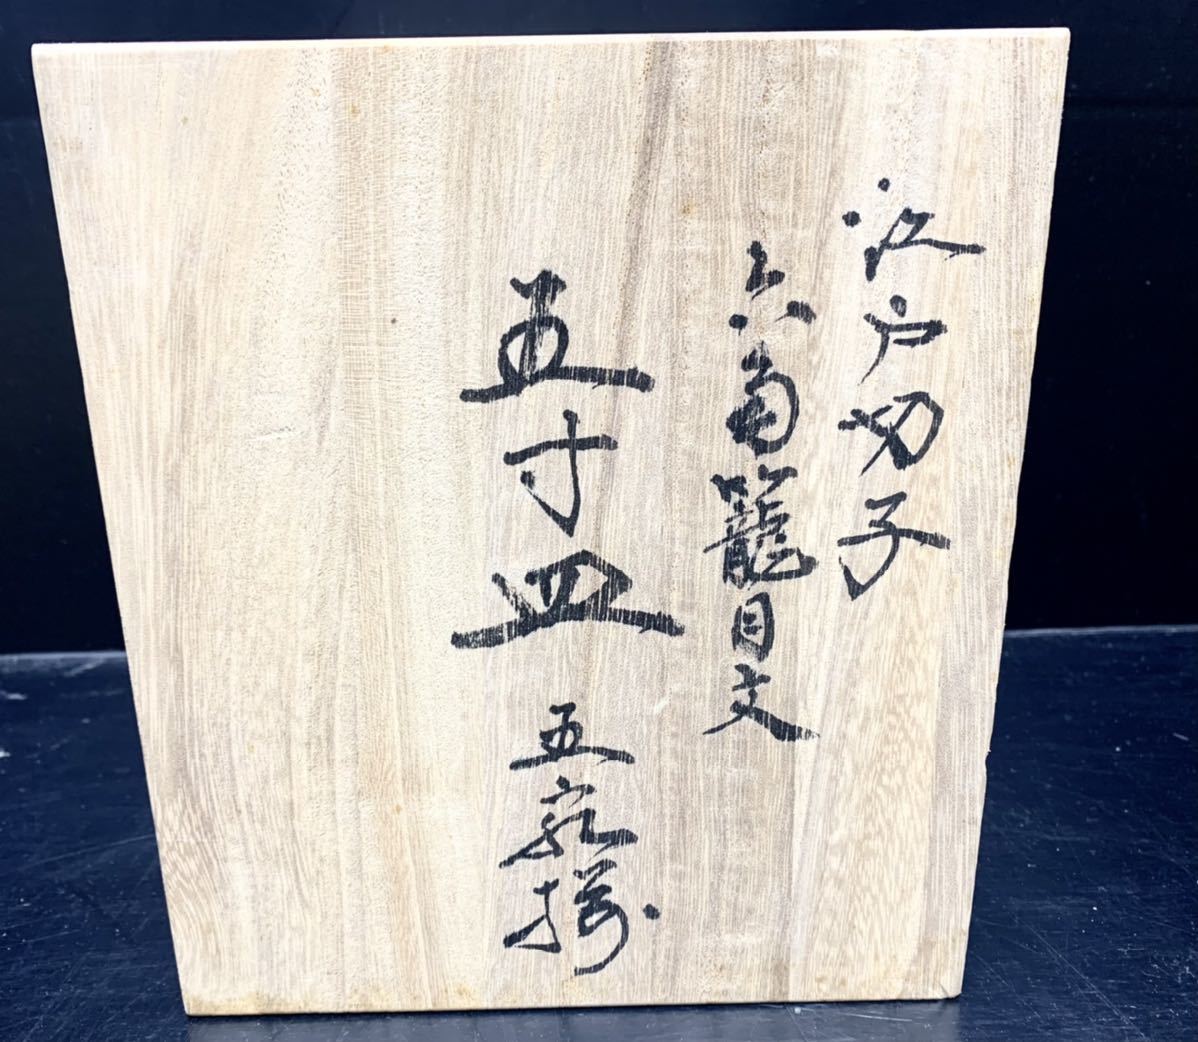 江戸切子
六角籠目文
五寸皿 五客揃